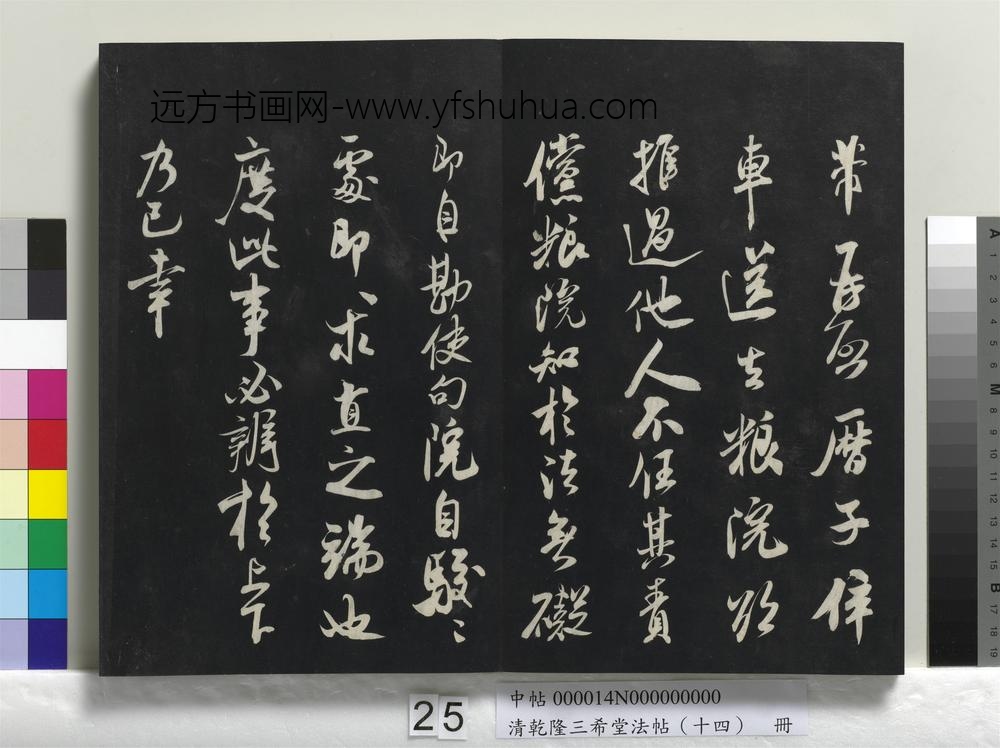 远方书画网-www.yfshuhua.com
帶 曆子併
車送去粮院
推過他人不任其責
儻粮院知於法無礙
即自勘使句院自駮〻
處即求直之端也
度此事必辨於上下
乃已幸
25
中帖 000014N000000000
清乾隆三希堂法帖（十四） 冊
A 1 2 3 4 5 6 M 8 9 10 11 12 13 14 15 B 17 18 19